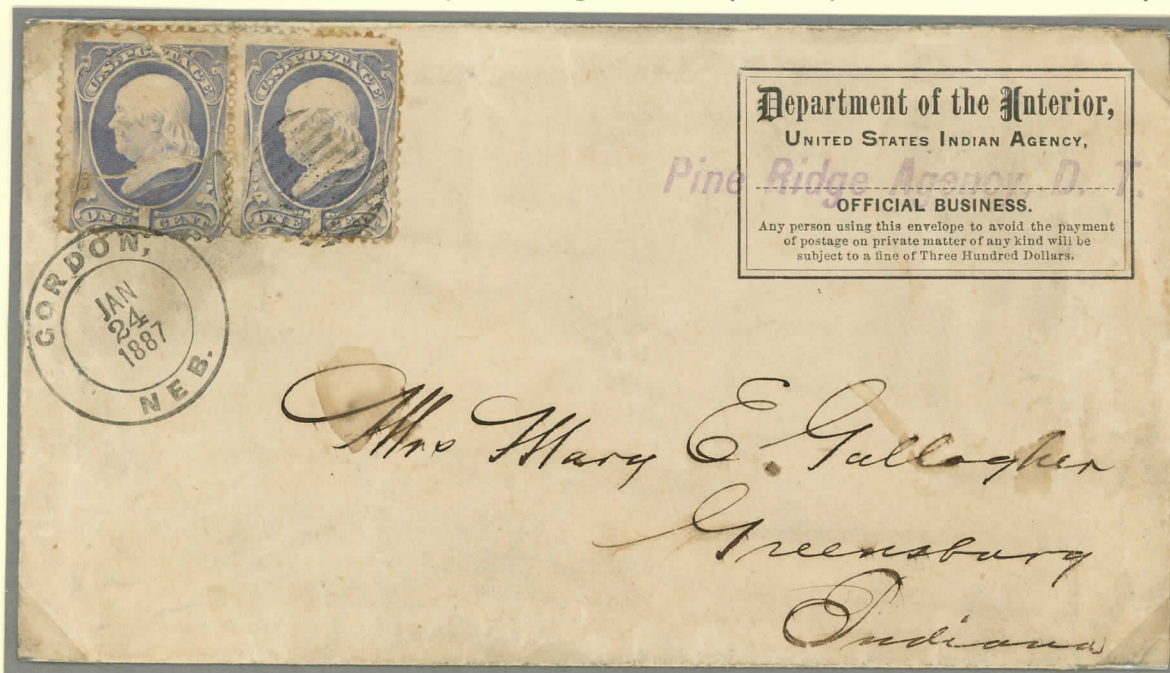 U.S. POSTAGE
ONE 1 CENT
U.S. POSTAGE
ONE 1 CENT
Department of the Interior,
UNITED STATES INDIAN AGENCY,
Pine Ridge Agency, D. T.
OFFICIAL BUSINESS.
Any person using this envelope to avoid the payment
of postage on private matter of any kind will be
subject to a fine of Three Hundred Dollars.
GORDON,
JAN
24
1887
NEB.
Mrs Mary E. Gallagher
Greensburg
Indiana